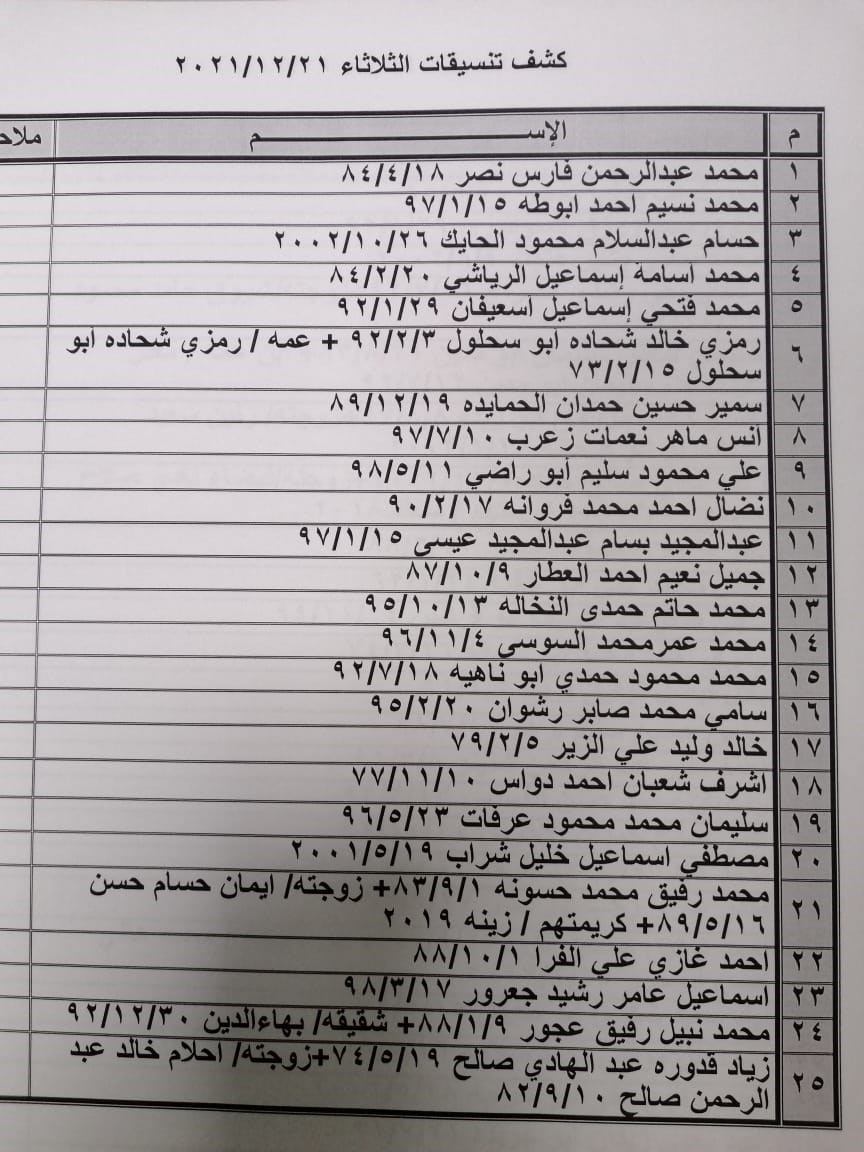 كشف تنسيقات الثلاثاء ٢٠٢١/١٢/٢١
م الإســـــــــــم ملاح
١ محمد عبدالرحمن فارس نصر ٨٤/٤/١٨
٢ محمد نسيم احمد ابوطه ٩٧/١/١٥
٣ حسام عبدالسلام محمود الحايك ٢٠٠٢/١٠/٢٦
٤ محمد أسامة إسماعيل الرياشي ٨٤/٢/٢٠
٥ محمد فتحي إسماعيل أسعيفان ٩٢/١/٢٩
٦ رمزي خالد شحاده أبو سحلول ٩٢/٢/٣ + عمه / رمزي شحاده أبو
سحلول ٧٣/٢/١٥
٧ سمير حسين حمدان الحمايده ٨٩/١٢/١٩
٨ انس ماهر نعمات زعرب ٩٧/٧/١٠
٩ علي محمود سليم أبو راضي ٩٨/٥/١١
١٠ نضال احمد محمد فروانه ٩٠/٢/١٧
١١ عبدالمجيد بسام عبدالمجيد عيسى ٩٧/١/١٥
١٢ جميل نعيم احمد العطار ٨٧/١٠/٩
١٣ محمد حاتم حمدى النخاله ٩٥/١٠/١٣
١٤ محمد عمرمحمد السوسي ٩٦/١١/٤
١٥ محمد محمود حمدي ابو ناهيه ٩٢/٧/١٨
١٦ سامي محمد صابر رشوان ٩٥/٢/٢٠
١٧ خالد وليد علي الزير ٧٩/٢/٥
١٨ اشرف شعبان احمد دواس ٧٧/١١/١٠
١٩ سليمان محمد محمود عرفات ٩٦/٥/٢٣
٢٠ مصطفي اسماعيل خليل شراب ٢٠٠١/٥/١٩
٢١ محمد رفيق محمد حسونه ٨٣/٩/١+ زوجته/ ايمان حسام حسن
٨٩/٥/١٦+ كريمتهم / زينه ٢٠١٩
٢٢ احمد غازي علي الفرا ٨٨/١٠/١
٢٣ اسماعيل عامر رشيد جعرور ٩٨/٣/١٧
٢٤ محمد نبيل رفيق عجور ٨٨/١/٩+ شقيقه/ بهاءالدين ٩٢/١٢/٣٠
٢٥ زياد قدوره عبد الهادي صالح ٧٤/٥/١٩+زوجته/ أحلام خالد عبد
الرحمن صالح ٨٢/٩/١٠